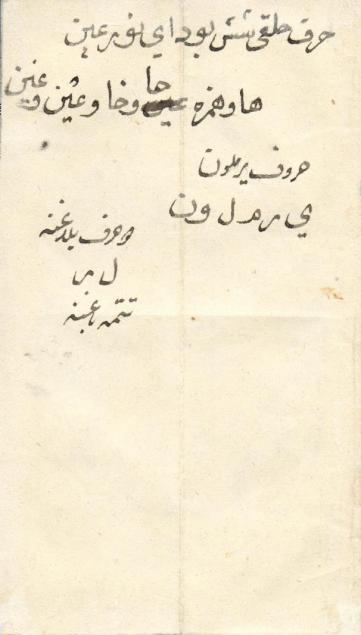 حرف حلقی شش بود ای نور عین
ها و همزه حا و خا و عین و غین
حروف یرملون
ی ر م ل و ن
دو حرف بلاغنه
ل ر
تتمه باغنه